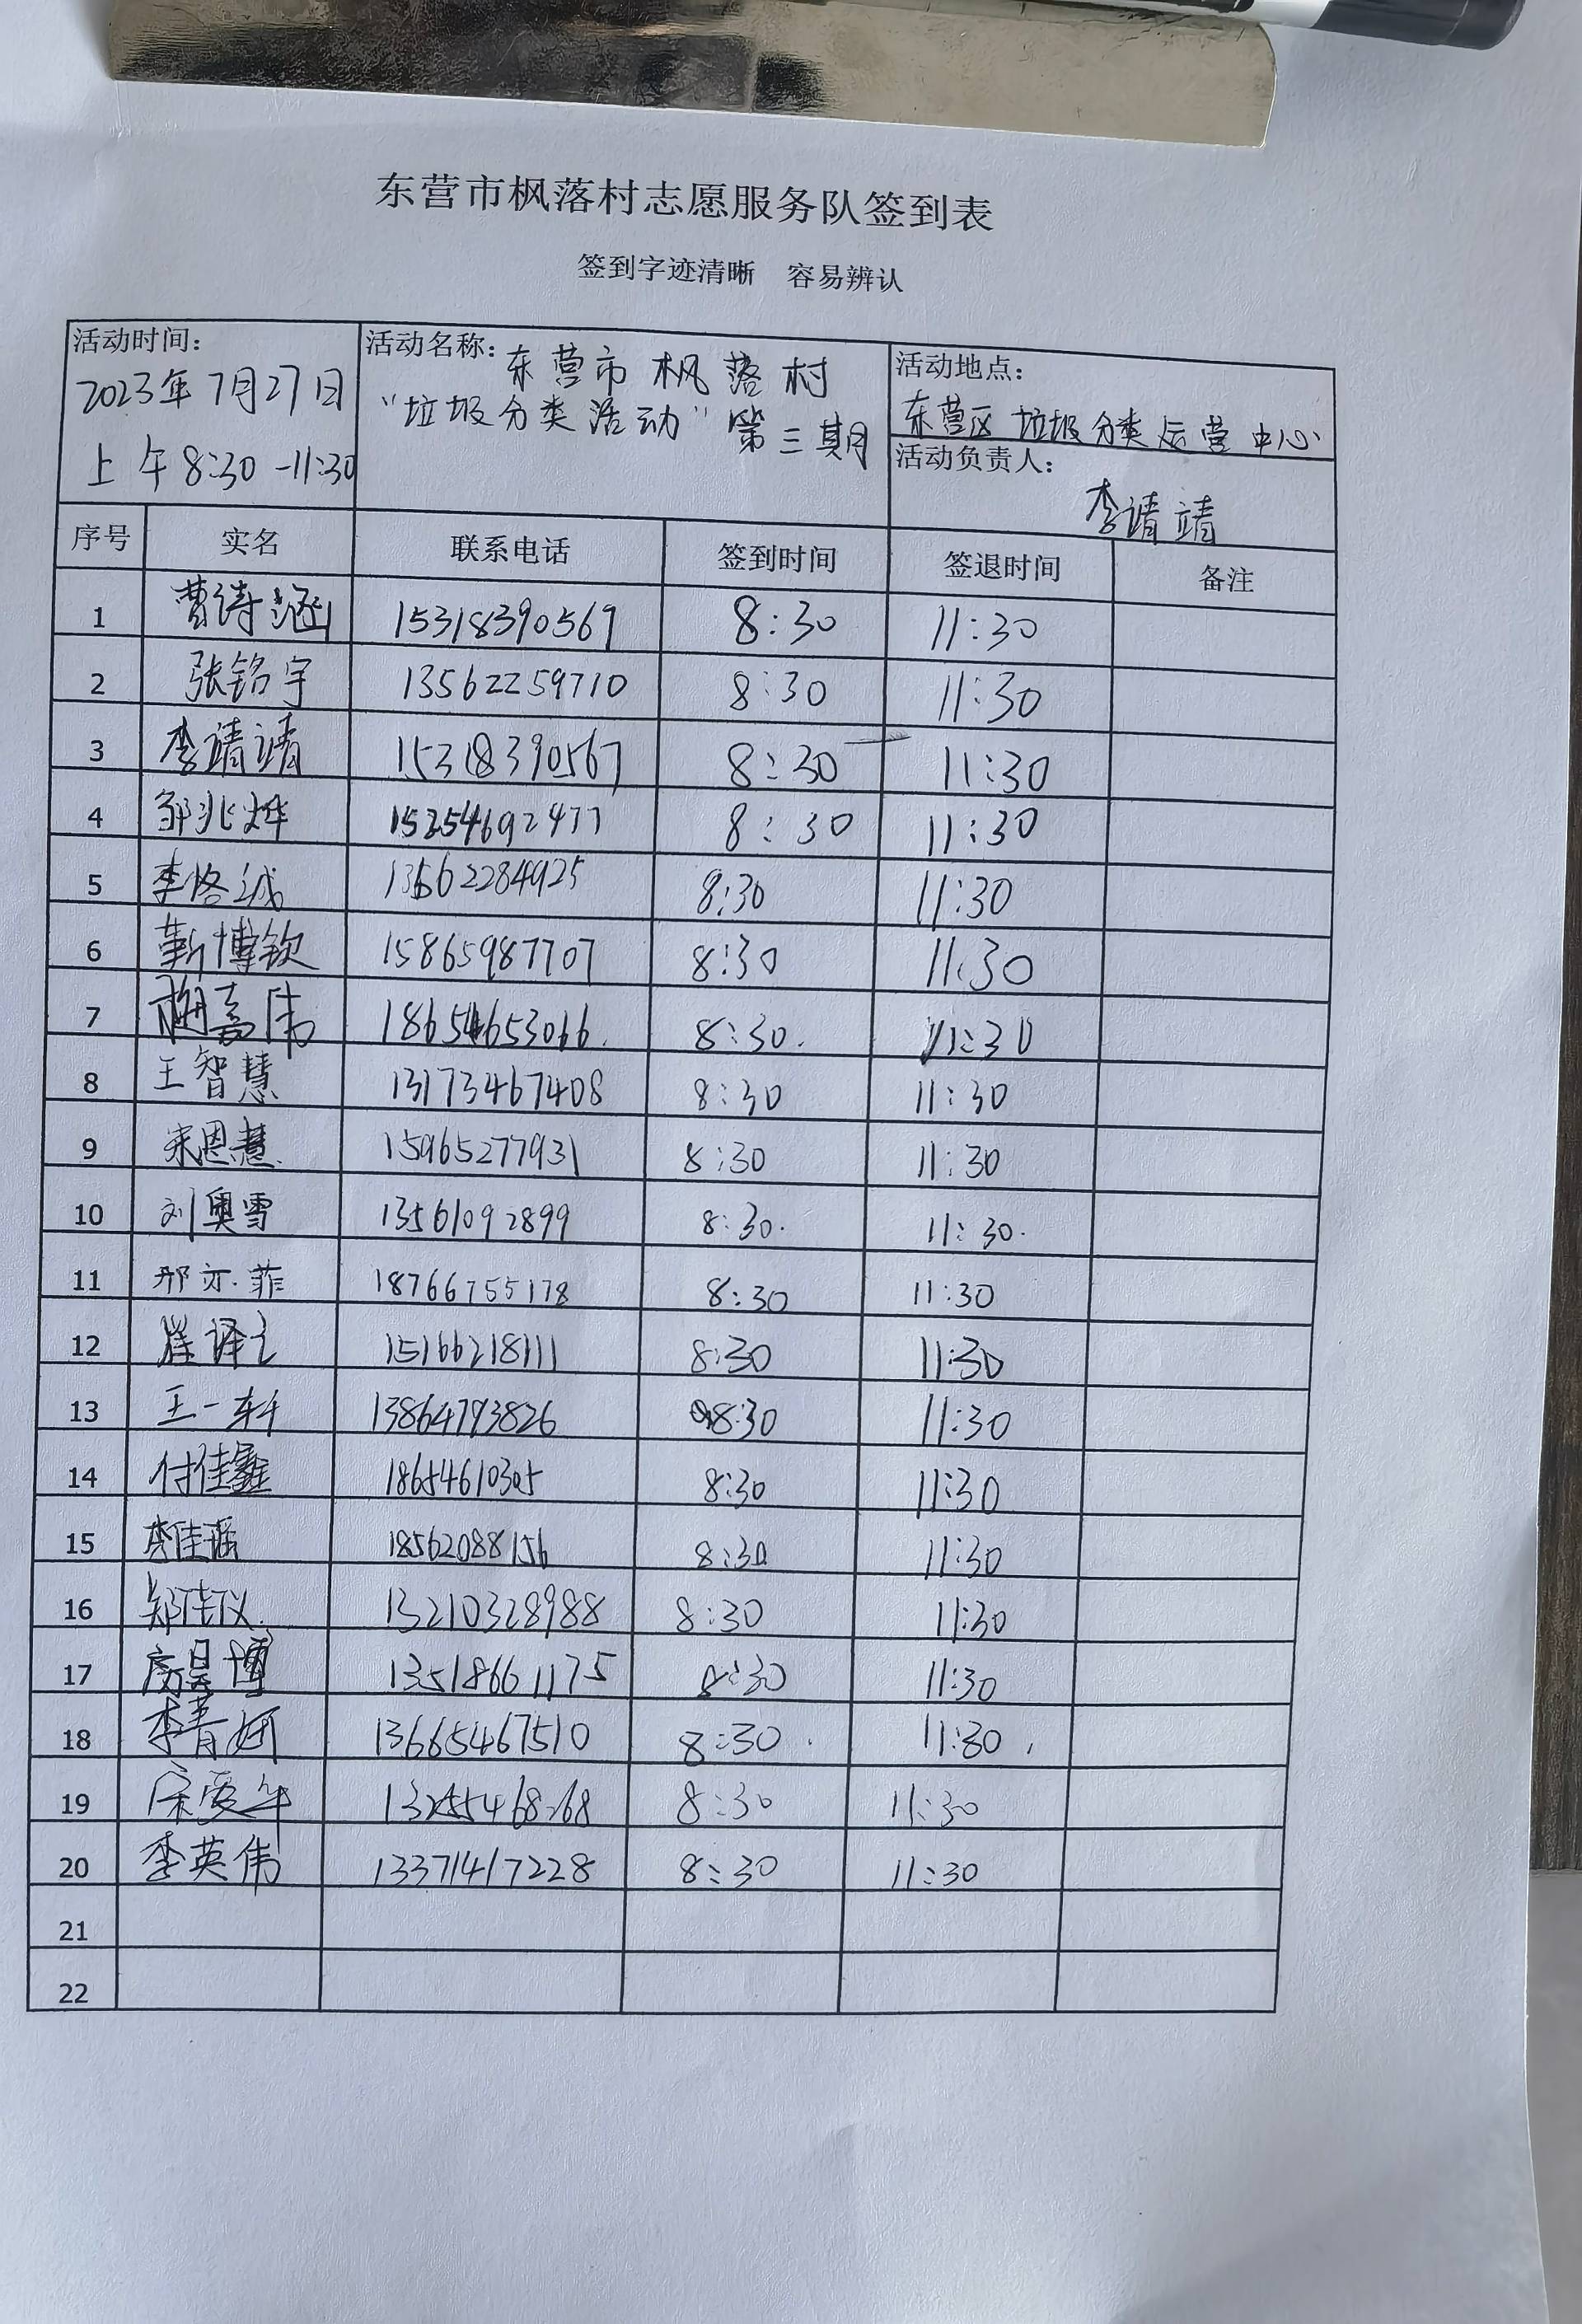 东营市枫落村志愿服务队签到表
签到字迹清晰 容易辨认
活动时间:
2023年7月27日
上午8:30-11:30
活动名称: 东营市枫落村
“垃圾分类活动”第三期
活动地点:
东营区垃圾分类运营中心
活动负责人:
李靖靖
序号 实名 联系电话 签到时间 签退时间 备注
1 曹诗涵 15318390569 8:30 11:30
2 张铭宇 13562259710 8:30 11:30
3 李靖靖 15318390567 8:30 11:30
4 邹兆烨 15254692477 8:30 11:30
5 李恪诚 13562284925 8:30 11:30
6 靳博钦 15865987707 8:30 11:30
7 梅嘉伟 18654653066. 8:30. 11:30
8 王智慧 13173467408 8:30 11:30
9 宋恩慧. 15965277931 8:30 11:30
10 刘奥雪 13561092899 8:30. 11:30.
11 邢亦菲 18766755178 8:30 11:30
12 崔译 15166218111 8:30 11:30
13 王一轩 13864793826 8:30 11:30
14 付佳鑫 18654610305 8:30 11:30
15 李佳瑶 18562088156 8:30 11:30
16 郑佳仪. 13210328988 8:30 11:30
17 房昊博 13518661175 8:30 11:30
18 李青妍 13665467510 8:30. 11:30.
19 8:30 11:30
20 李英伟 13371417228 8:30 11:30
21
22